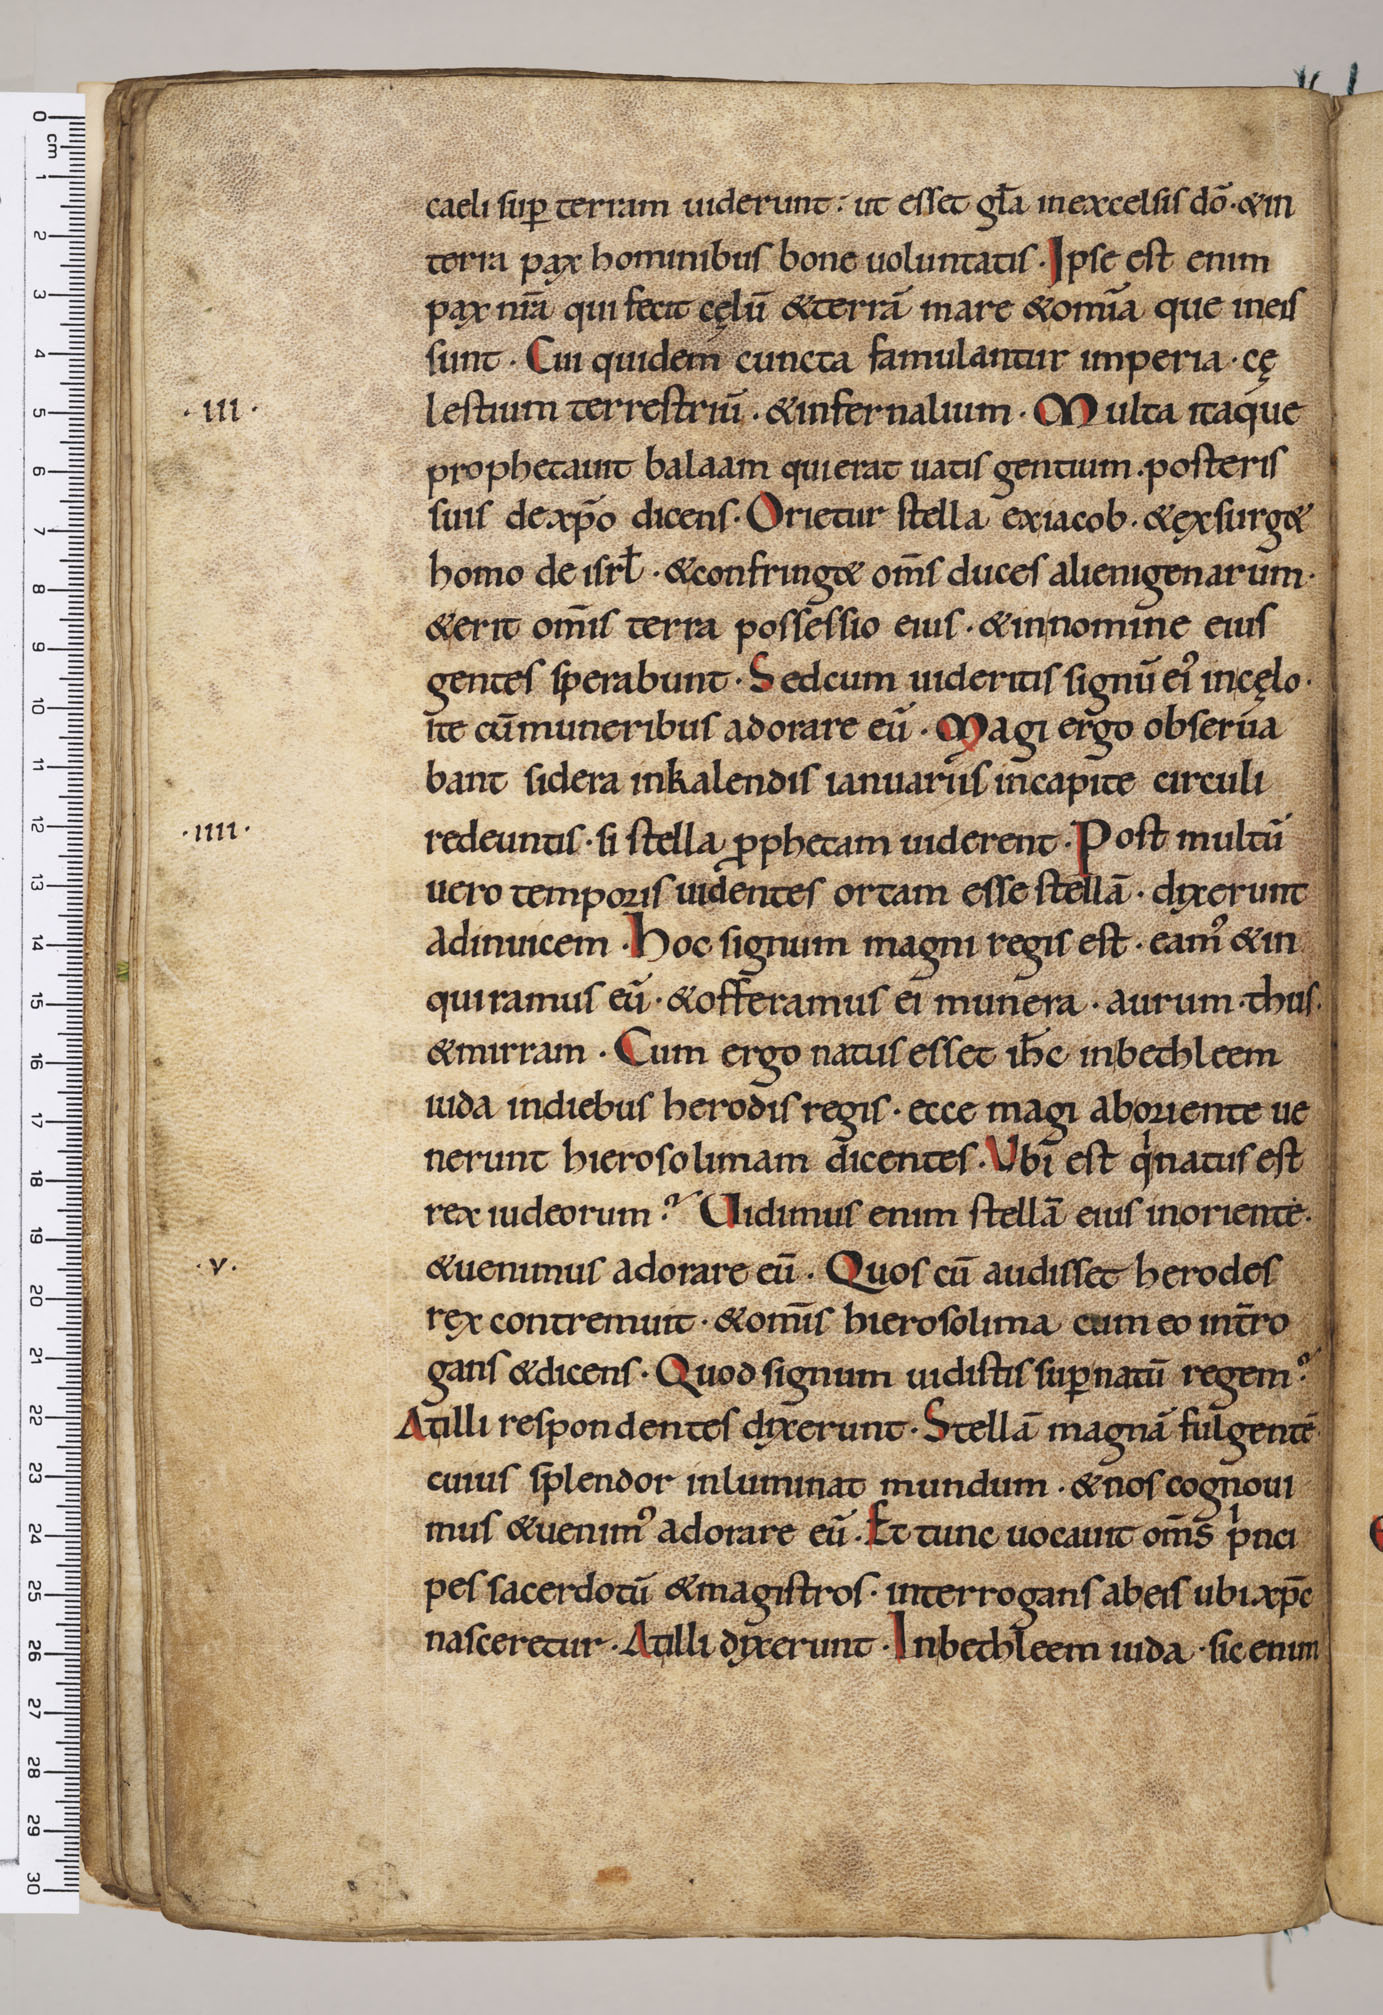 caeli sup̱ terram uiderunt. ut esset gl̄a inexcelsis dō. &in
terra pax hominibus bone uoluntatis. Ipse est enim
pax nr̄a qui fecit cęlū &terrā mare &omīa que ineis
sunt. Cui quidem cuncta famulantur imperia. cę
·III· lestium terrestriū. &infernalium. Multa itaque
prophetauit balaam qui erat uatis gentium. posteris
suis dexp̄o dicens. Orietur stella exiacob. &exsurg&
homo de isrł. &confring& om̄s duces alienigenarum.
&erit om̄is terra possessio eius. &innomine eius
gentes sperabunt. Sedcum uideritis signū ei᾽ incęlo.
ite cūmuneribus adorare eū. Magi ergo obserua
bant sidera inkalendis ianuariis incapite circuli
·IIII· redeuntis. si stella ꝓphetam uiderent. Post multū
uero temporis uidentes ortam esse stellā. dixerunt
adinuicem. Hoc signum magni regis est. eam᾽ &in
quiramus eū. &offeramus ei munera. aurum. thus.
&mirram. Cum ergo natus esset ih̄c inbethleem
iuda indiebus herodis regis. ecce magi aboriente ue
nerunt hierosolimam dicentes. Vbi est qͥnatus est
rex iudeorum? Uidimus enim stellā eius inoriente.
·V· &uenimus adorare eū. Quos cū audisset herodes
rex contremuit. &om̄is hierosolima cum eo int̄ro
gans &dicens. Quod signum uidistis sup̱natū regem?
Atilli respondentes dixerunt. Stellā magnā fulgentē
cuius splendor inluminat mundum. &nos cognoui
mus &uenim᾽ adorare eū. Et tunc uocauit om̄s pͥnci
pes sacerdotū &magistros. interrogans abeis ubi xp̄c
nasceretur. Atilli dixerunt. Inbethleem iuda. sic enim